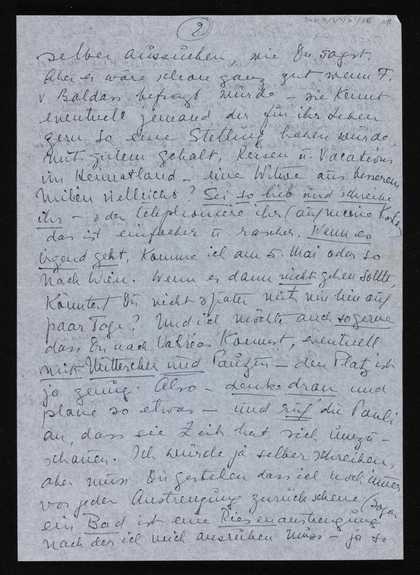 2
selber aussuchen, wie Du sagst.
Aber es wäre schon ganz gut wenn F.
v Baldass befragt würde – sie kennt
eventuell jemand der für ihr Leben
gern so eine Stellung haben würde,
mit gutem Gehalt, Reisen u Vacations
im Heimatland – eine Witwe aus besseren
Milieu vielleicht? Sei so lieb und schreibe
ihr – oder telephoniere ihr (auf meine Kosten)
das ist einfacher u rascher. Wenn es
irgend geht, komme ich am 5. Mai oder so
nach Wien. Wenn es dann nicht gehen sollte,
könntest Du nicht später mit mir hin auf
paar Tage? Und ich möchte auch so gerne
dass Du nach kommst, eventuell
mit Mutterchen und – der Platz ist
ja genug. Also – denke dran und
plane so etwas – und ruf die Pauli
an, dass sie Zeit hat sich umzu-
schauen. Ich würde ja selber schreiben,
aber muss Dir gestehen dass ich noch immer
vor jeder Anstrengung zurückscheue / sogar
ein Bad ist eine Riesenanstrengung
nach der ich mich ausruhen muss – ja so